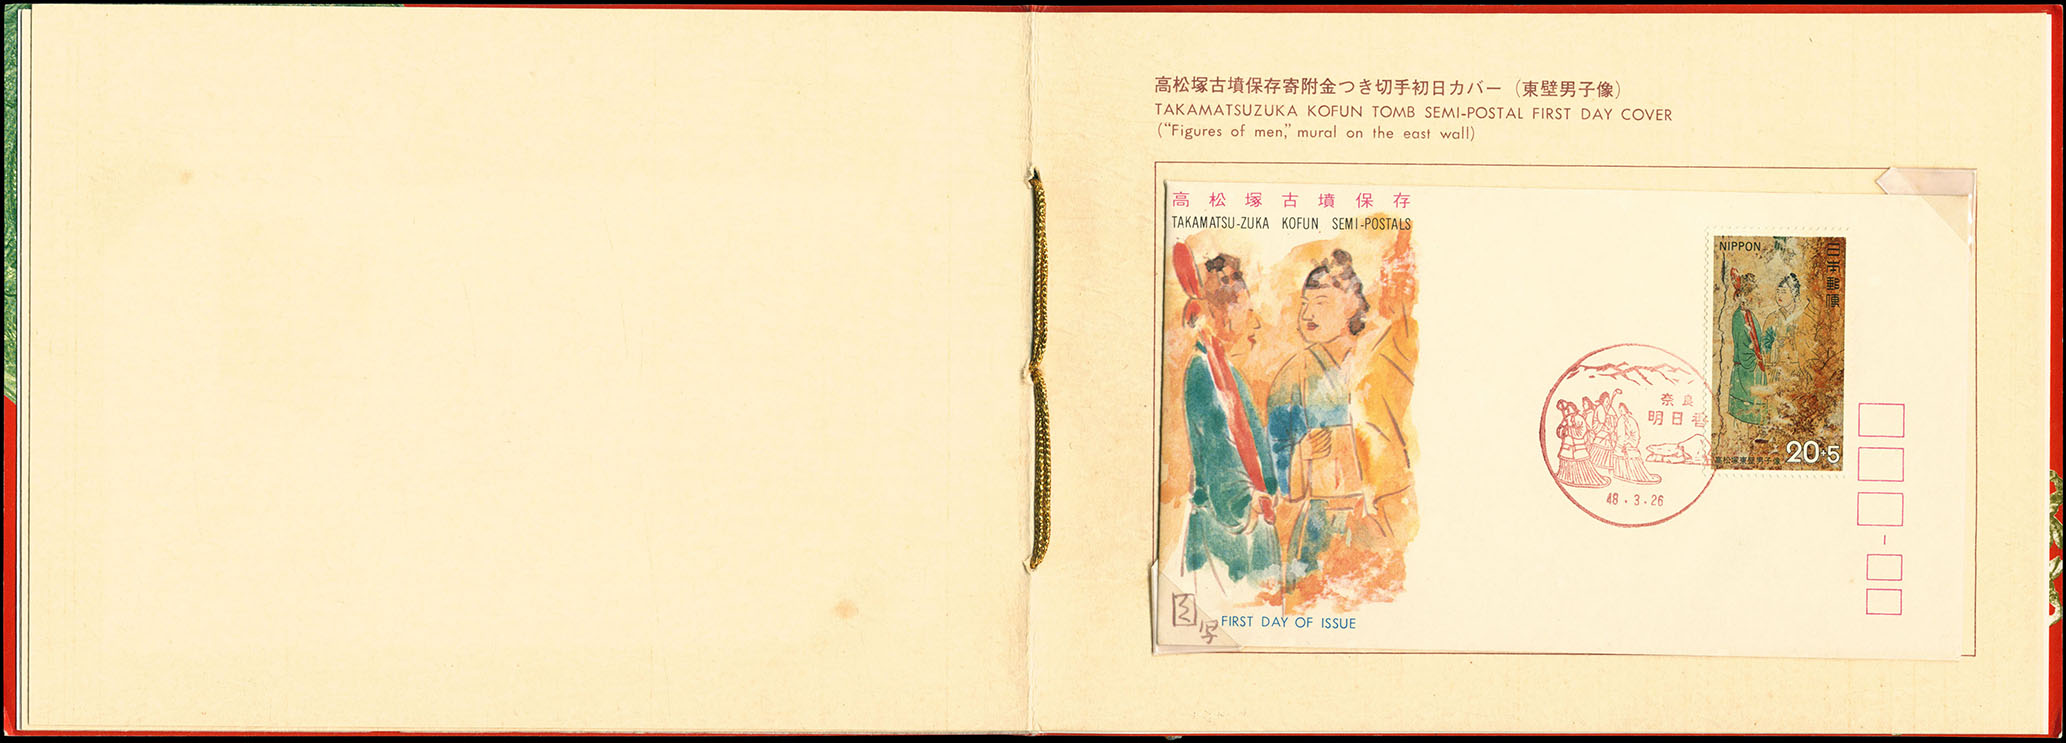 高松塚古墳保存寄附金つき切手初日カバー（東壁男子像）
TAKAMATSUZUKA KOFUN TOMB SEMI-POSTAL FIRST DAY COVER
(“Figures of men,” mural on the east wall)
高松塚古墳保存
TAKAMATSU-ZUKA KOFUN SEMI-POSTALS
FIRST DAY OF ISSUE
奈良
明日香
48.3.26
NIPPON
日本郵便
高松塚東壁男子像
20+5